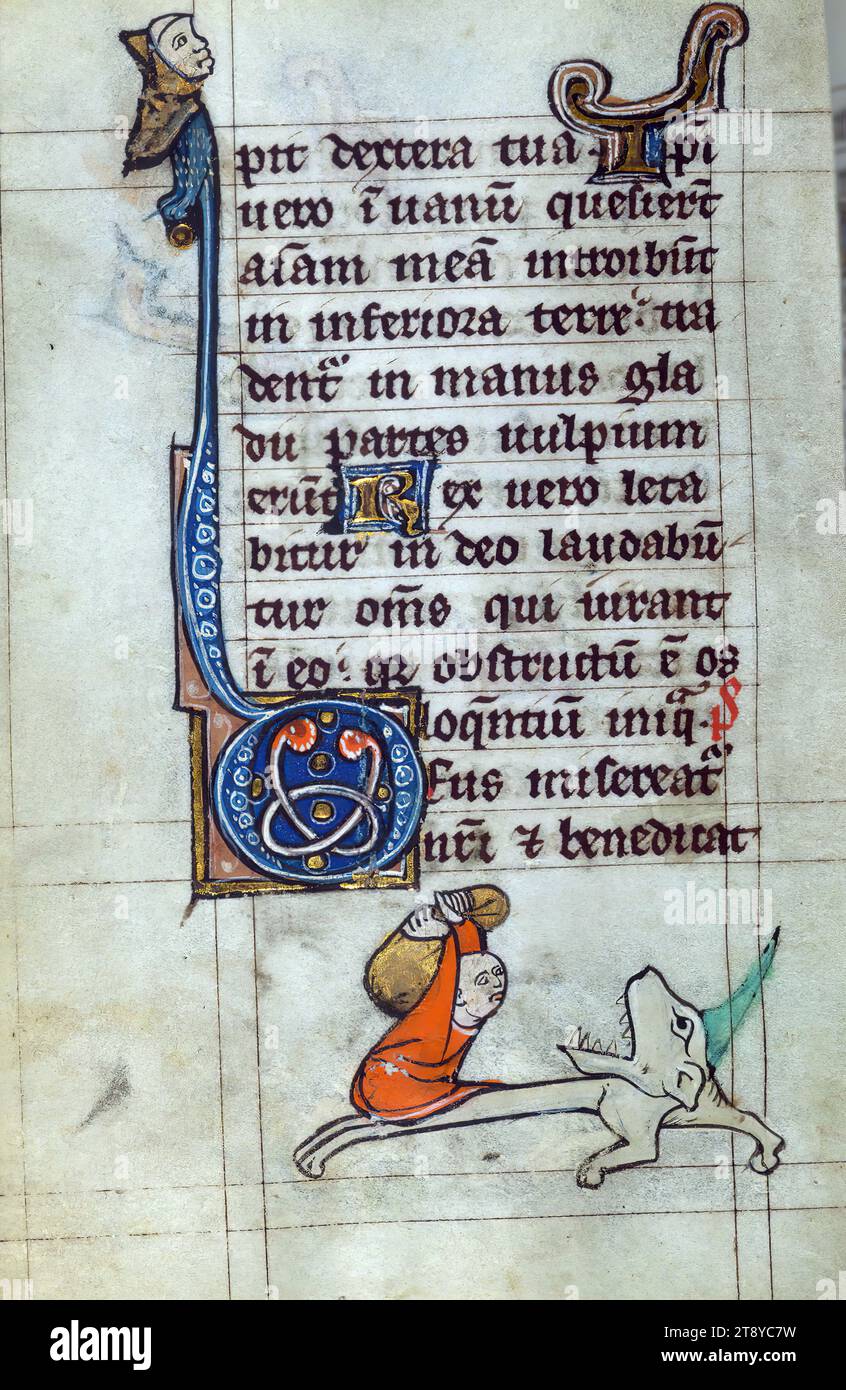 pit dextera tua · Ipi̅
uero i̅ uanu̅ quesier̅t
ai̅am mea̅ introibu̅t
in inferiora terre · tra
dent᷑ in manus gla
dii partes uulpium
eru̅t Rex uero leta
bitur in deo laudabu̅
tur om̅s qui iurant
i̅ eo · qr obstructu̅ e̅ os
loq̅ntiu̅ iniq · p̅s
Deus misereat᷑
nr̅i ⁊ benedicat
alamy
Image ID: 2T8YC7W
www.alamy.com